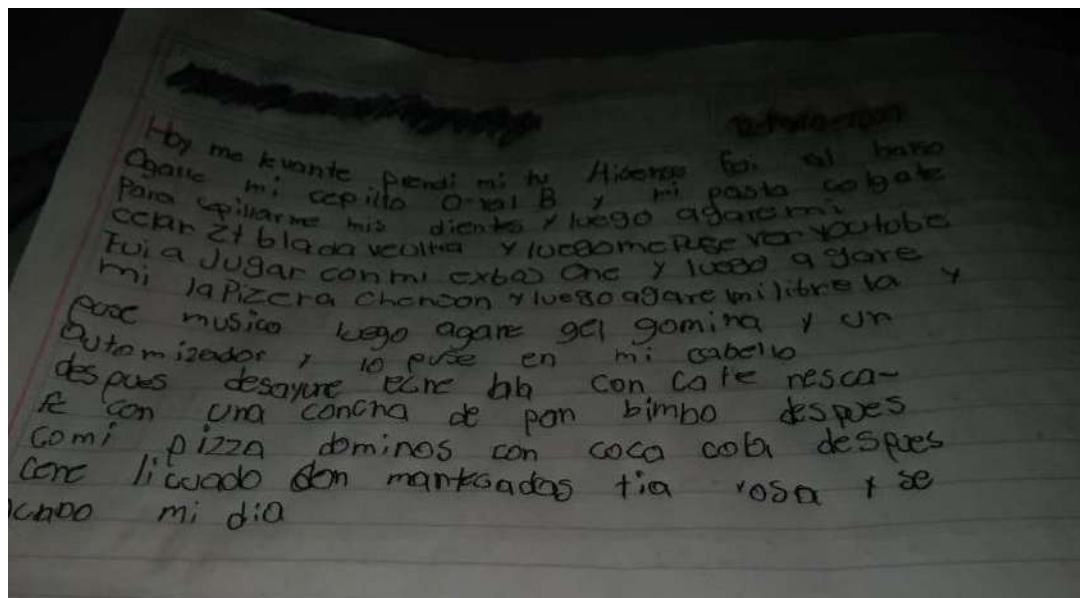 Hoy me levante prendi mi tv Hisense fui al baño
agarre mi cepillo O-ral B y mi pasta colgate
Para cepillarme mis dientes y luego agaremi
celar Zt blada y luegome puse ver youtobe
Fui a Jugar con mi exbox One y luego agare
mi laPizera chenson y luego agare mi libreta y
puse musica luego agare gel gomina y un
automizador y lo puse en mi cabello
despues desayune con cafe nesca-
fe con una concha de pan bimbo despues
comi pizza dominos con coca cola despues
cene licuado con mantecadas tia rosa y se
acabo mi dia